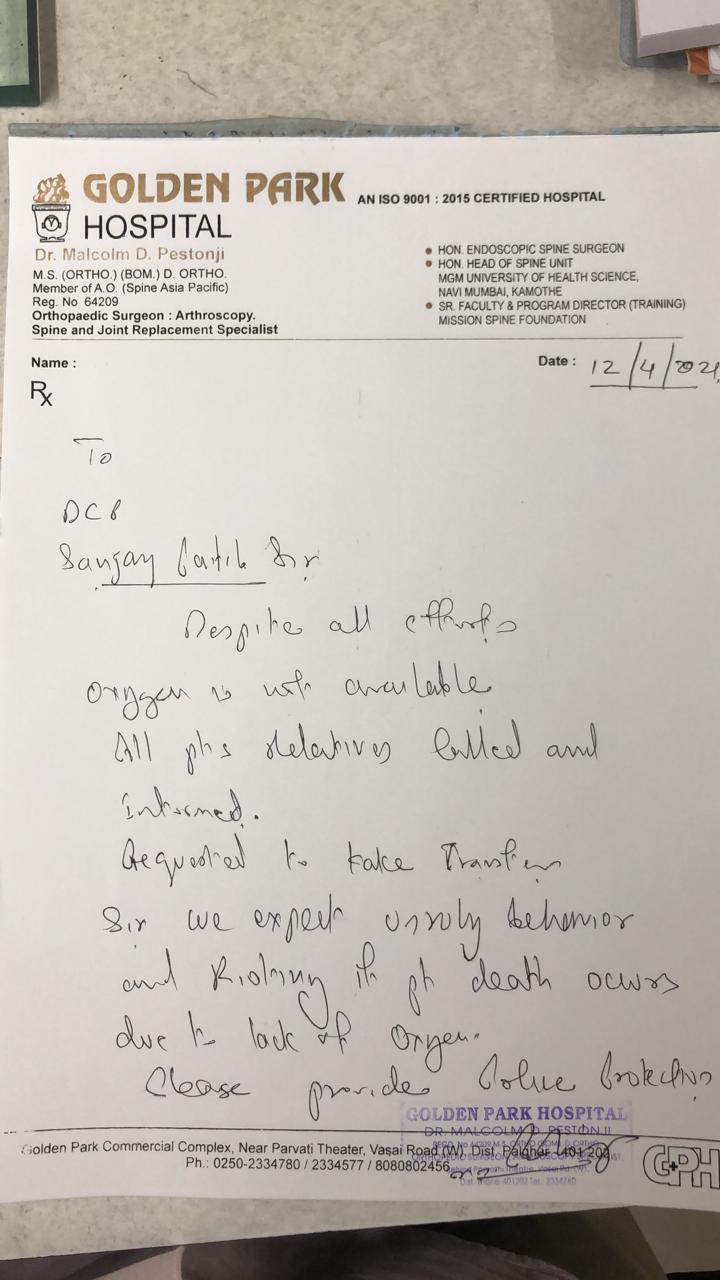 GOLDEN PARK
HOSPITAL
AN ISO 9001 : 2015 CERTIFIED HOSPITAL
Dr. Malcolm D. Pestonji
M.S. (ORTHO.) (BOM.) D. ORTHO.
Member of A.O. (Spine Asia Pacific)
Reg. No 64209
Orthopaedic Surgeon : Arthroscopy.
Spine and Joint Replacement Specialist
HON. ENDOSCOPIC SPINE SURGEON
HON. HEAD OF SPINE UNIT
MGM UNIVERSITY OF HEALTH SCIENCE,
NAVI MUMBAI, KAMOTHE
SR. FACULTY & PROGRAM DIRECTOR (TRAINING)
MISSION SPINE FOUNDATION
Name :
Date : 12/4/2021
Rx
To
DCP
Sanjay Patil Sir
Despite all efforts
Oxygen is not available
All pts relatives called and
Informed.
Requested to take Transfer
Sir we expect unruly behavior
and Rioting if pt death occurs
due to lack of Oxygen.
Please provide Police Protection
GOLDEN PARK HOSPITAL
DR. MALCOLM D. PESTONJI
Golden Park Commercial Complex, Near Parvati Theater, Vasai Road (W), Dist. Palghar 401 202
Ph.: 0250-2334780 / 2334577 / 8080802456
GPH